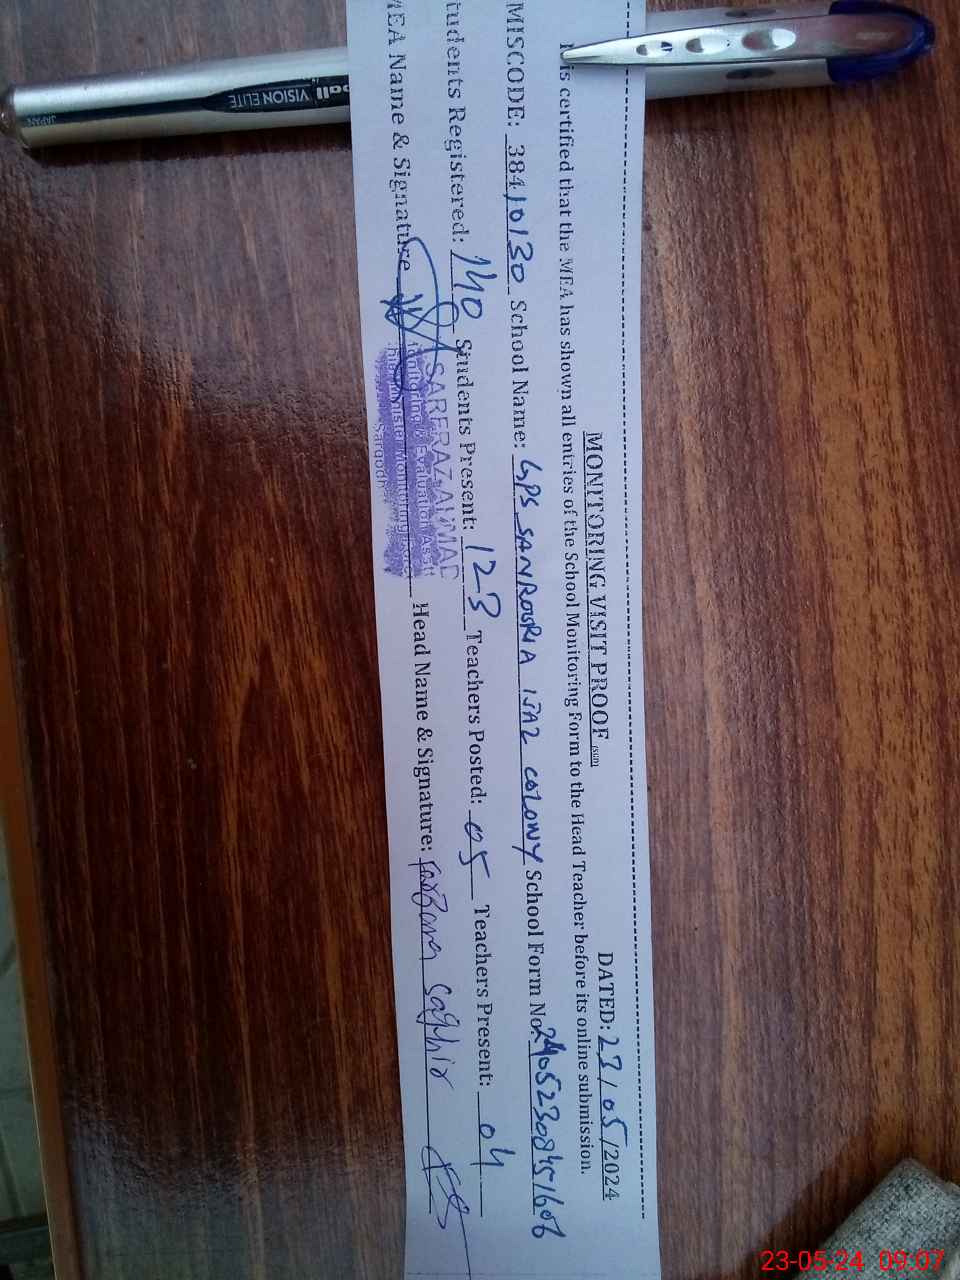 MONITORING VISIT PROOF DATED: 23/05/2024
is certified that the MEA has shown all entries of the School Monitoring Form to the Head Teacher before its online submission.
MISCODE: 38410130 School Name: GPS SANROORIA IJAZ COLONY School Form No.
tudents Registered: 140 Students Present: 123 Teachers Posted: 05 Teachers Present: 04
MEA Name & Signature Head Name & Signature: Farzana Saghir
SARFRAZ AHMAD
Monitoring & Evaluation Asstt
Sargodh
ball VISION ELITE
JAPAN
23-05-24 09:07